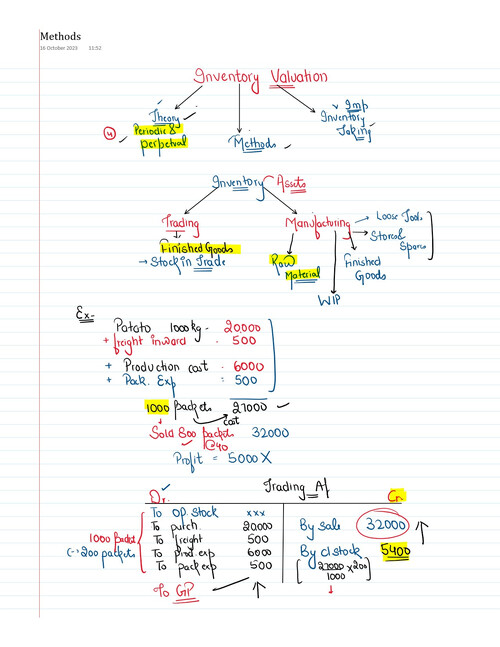 Methods
16 October 2023 11:52
Inventory Valuation
Theory
④ Periodic &
perpetual
Methods
Imp
Inventory
Taking
Inventory Assets
Trading
Finished Goods
→ Stock in Trade
Manufacturing
Raw
Material
WIP
Finished
Goods
Loose Tools
Stores &
Spares
Ex-
Potato 1000kg - 20,000
+ freight inward . 500
+ Production cost . 6000
+ Pack. Exp : 500
1000 packets 27000
cost
Sold 800 packets 32000
@40
Profit = 5000 X
Dr. Trading A/c Cr.
To Op. stock xxx
To purch. 20,000
To freight 500
To prod exp 6000
To pack exp 500
To GP
1000 packet
(-) 200 packets
By sale 32000
By cl stock 5400
[27000 x 200]
1000